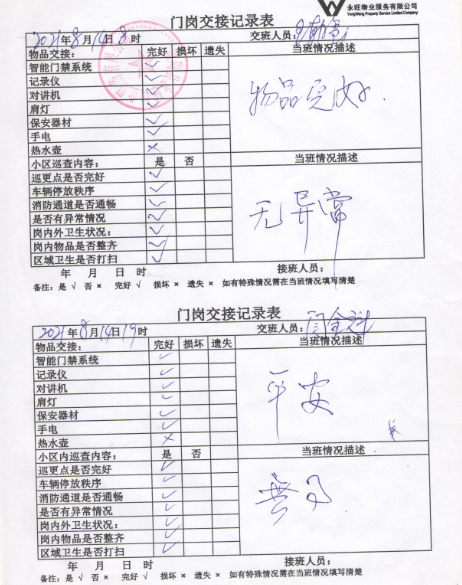 永旺物业服务有限公司
YongWang Property Service Limited Company
门岗交接记录表
2021年8月14日8时 交班人员：
物品交接： 完好 损坏 遗失 当班情况描述
智能门禁系统 ✓
记录仪 ✓
对讲机 ✓
肩灯 ✓
保安器材 ✓
手电 ✓
热水壶 ×
物品完好
小区巡查内容： 是 否 当班情况描述
巡更点是否完好 ✓
车辆停放秩序 ✓
消防通道是否通畅 ✓
是否有异常情况 ✓
岗内外卫生状况： ✓
岗内物品是否整齐 ✓
区域卫生是否打扫 ✓
无异常
年 月 日 时 接班人员：
备注：是 √ 否 × 完好 √ 损坏 × 遗失 × 如有特殊情况需在当班情况填写清楚
门岗交接记录表
2021年8月14日19时 交班人员：
物品交接： 完好 损坏 遗失 当班情况描述
智能门禁系统 ✓
记录仪 ✓
对讲机 ✓
肩灯 ✓
保安器材 ✓
手电 ✓
热水壶 ×
平安
小区内巡查内容： 是 否 当班情况描述
巡更点是否完好 ✓
车辆停放秩序 ✓
消防通道是否通畅 ✓
是否有异常情况 ✓
岗内外卫生状况： ✓
岗内物品是否整齐 ✓
区域卫生是否打扫 ✓
年 月 日 时 接班人员：
备注：是 √ 否 × 完好 √ 损坏 × 遗失 × 如有特殊情况需在当班情况填写清楚